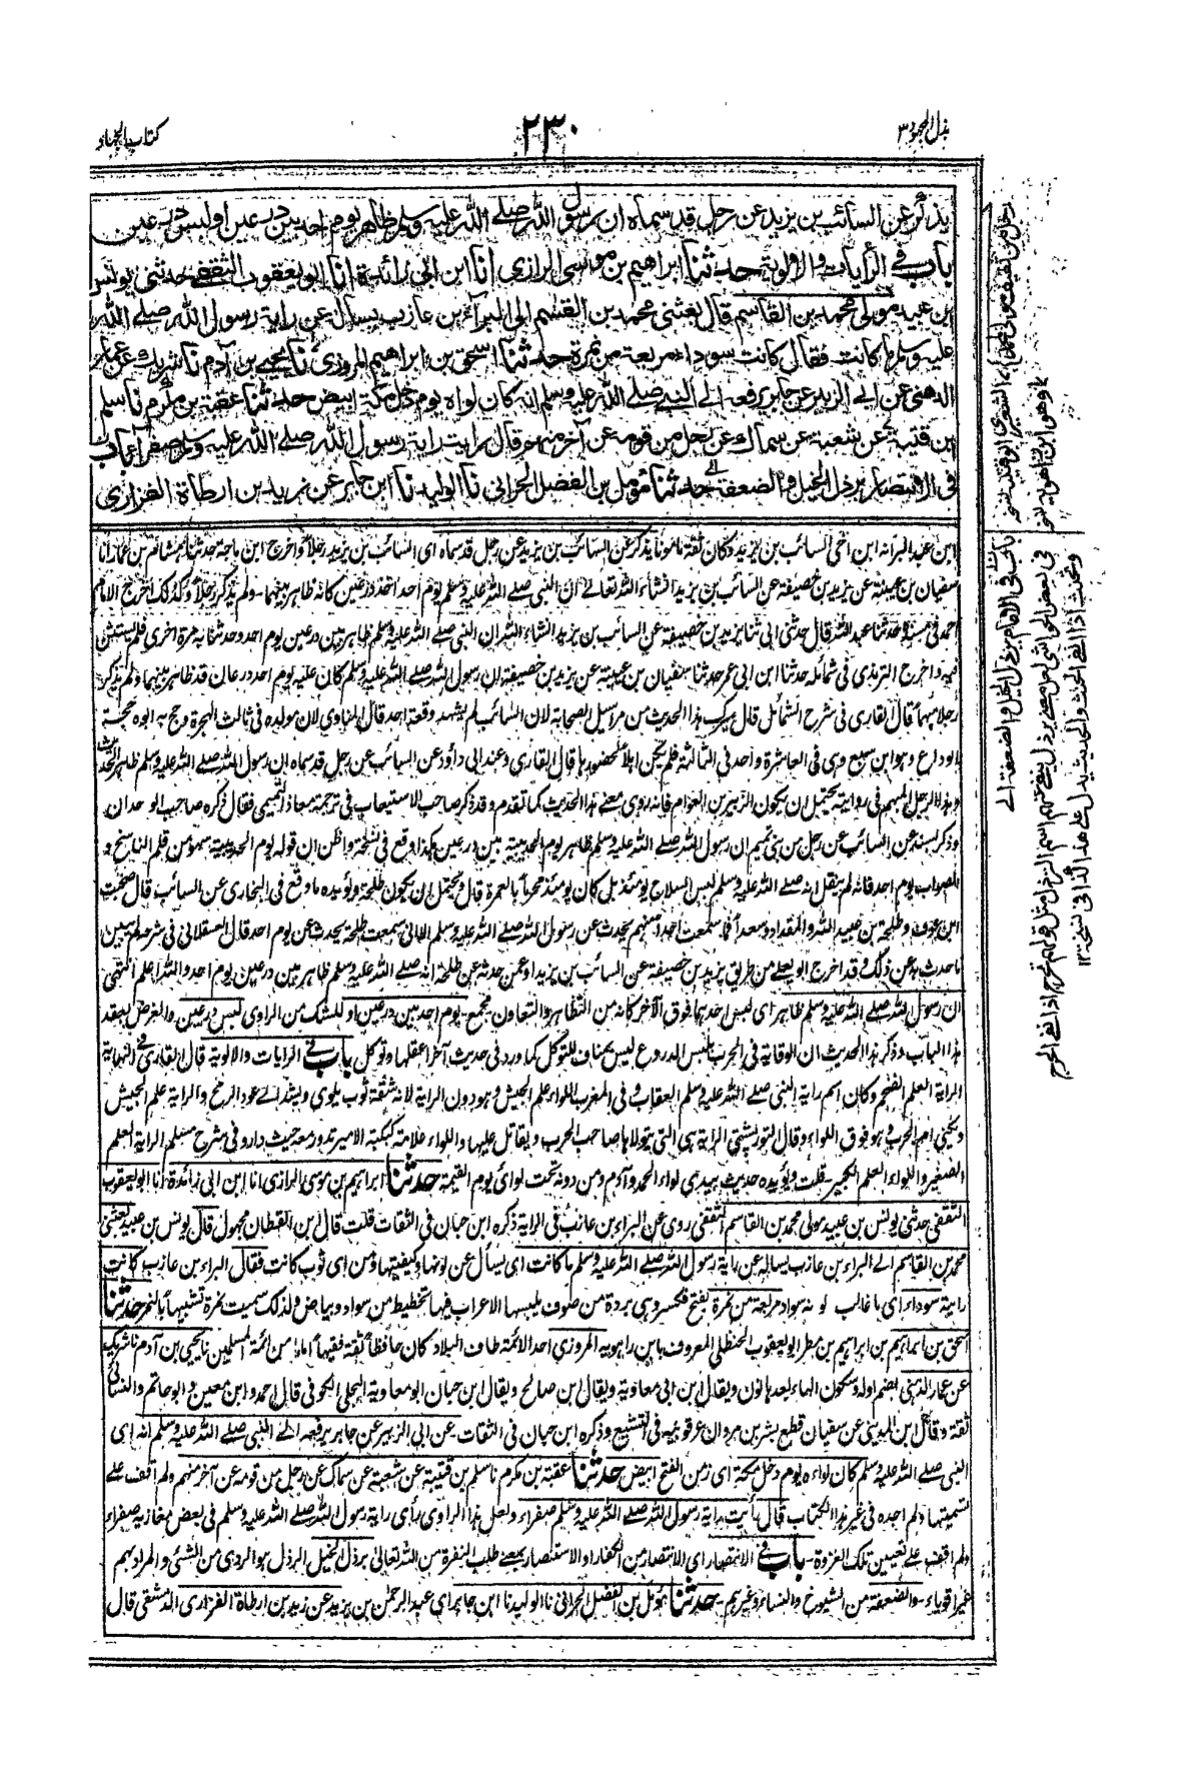 بذل المجهود ٣
٢٣٠
كتاب الجهاد
يذكر عن السائب بن يزيد عن رجل قد سماه ان رسول الله صلے الله عليه وسلم ظاهر يوم احد بين درعين او لبس درعين
باب في الرايات والالوية حدثنا ابراهيم بن موسى الرازي انا ابن ابي زائدة انا ابو يعقوب الثقفي حدثني يونس
ابن عبيد مولى محمد بن القاسم قال بعثني محمد بن القاسم الى البراء بن عازب يسأله عن راية رسول الله صلے الله
عليه وسلم ما كانت فقال كانت سوداء مربعة من نمرة حدثنا اسحق بن ابراهيم المروزي نا يحيى بن آدم نا شريك عن عمار
الدهني عن ابي الزبير عن جابر يرفعه الے النبي صلے الله عليه وسلم انه كان لواه يوم دخل مكة ابيض حدثنا عقبة بن مكرم نا سلم
ابن قتيبة عن شعبة عن سماك عن رجل من قومه عن آخر منهم قال رايت راية رسول الله صلے الله عليه وسلم صفراء باب
في الانتصار برذل الخيل والضعفة حدثنا مؤمل بن الفضل الحراني نا الوليد نا ابن جابر عن زيد بن ارطاة الفزاري
ابن عبد البر انه ابن اخى السائب بن يزيد وكان ثقة مامونا يذكر عن السائب بن يزيد عن رجل قد سماه اى السائب بن يزيد رجلا واخرج ابن ماجة حدثنا هشام بن عمار نا
سفيان بن عيينة عن يزيد بن خصيفة عن السائب بن يزيد انشاء الله تعالے ان النبى صلے الله عليه وسلم يوم احد اخذ درعين كانه ظاهر بينهما - ولم يذكر رجلا وكذلك اخرج الامام
احمد فى مسنده حدثنا عبد الله قال حدثنى ابى ثنا يزيد بن خصيفة عن السائب بن يزيد انشاء الله ان النبى صلے الله عليه وسلم ظاهر بين درعين يوم احد وحدثنا به مرة اخرى فلم يستثن
فيه واخرج الترمذى فى شمائله حدثنا ابن ابى عمر حدثنا سفيان بن عيينة عن يزيد بن خصيفة ان رسول الله صلے الله عليه وسلم كان عليه يوم احد درعان قد ظاهر بينهما ولم يذكر
رجلا مبهما قال القارى فى شرح الشمائل قال ميرك هذا الحديث من مراسيل الصحابة لان السائب لم يشهد وقعة احد قال المناوى لان مولده فى ثالث الهجرة وحج به ابوه حجة
الوداع وهو ابن سبع وهى فى العاشرة واحد فى الثالثة فلم يكن اهلا لحضورها قال القارى وعند ابى داؤد عن السائب عن رجل قد سماه ان رسول الله صلے الله عليه وسلم ظاهر الحديث
وهذا الرجل المبهم فى روايته يحتمل ان يكون الزبير بن العوام فانه روى معنے هذا الحديث كما تقدم وقد ذكر صاحب الاستيعاب فى ترجمة معاذ التيمى فقال ذكره صاحب الوحدان
وذكر بسنده عن السائب عن رجل من بنى تميم ان رسول الله صلے الله عليه وسلم ظاهر يوم الحديبية بين درعين هكذا وقع فى نسخة واظن ان قوله يوم الحديبية سهو من قلم الناسخ و
الصواب يوم احد فانه لم ينقل انه صلے الله عليه وسلم لبس السلاح يومئذ بل كان يومئذ محرما بالعمرة قال ويحتمل ان يكون طلحة ويؤيده ما وقع فى البخارى عن السائب قال صحبت
ابن عوف وطلحة بن عبيد الله والمقداد وسعدا فما سمعت احدا منهم يحدث عن رسول الله صلے الله عليه وسلم الا انى سمعت طلحة يحدث عن يوم احد قال العسقلانى فى شرحه لم يبين
ما حدث به عن ذلك وقد اخرج ابو يعلے من طريق يزيد بن خصيفة عن السائب بن يزيد او عمن حدثه عن طلحة انه صلے الله عليه وسلم ظاهر بين درعين يوم احد والله اعلم انتهى
ان رسول الله صلے الله عليه وسلم ظاهر اى لبس احدهما فوق الآخر كانه من التظاهر والتعاون مجمع - يوم احد بين درعين او للشك من الراوى لبس درعين والغرض بعقد
هذا الباب وذكر هذا الحديث ان الوقاية فى الحرب بلبس الدروع ليس بمناف للتوكل كما ورد فى حديث آخر اعقلها وتوكل باب فے الرايات والالوية قال القارى فى النهاية
الراية العلم الضخم وكان اسم راية النبى صلے الله عليه وسلم العقاب وفى المغرب اللواء علم الجيش وهو دون الراية لانه شقة ثوب يلوى ويشد الے عود الرمح والراية علم الجيش
ويكنى ام الحرب وهو فوق اللواء وقال التوربشتى الراية هى التى يتولاها صاحب الحرب ويقاتل عليها واللواء علامة كبكبة الامير تدور معه حيث دار وفى شرح مسلم الراية العلم
الصغير واللواء العلم الكبير - قلت ويؤيده حديث بيدى لواء الحمد وآدم ومن دونه تحت لوائى يوم القيمة حدثنا ابراهيم بن موسى الرازى انا ابن ابى زائدة انا ابو يعقوب
الثقفى حدثنى يونس بن عبيد مولى محمد بن القاسم الثقفى روى عن البراء بن عازب فى الراية ذكره ابن حبان فى الثقات قلت قال ابن القطان مجهول قال يونس بن عبيد بعثنى
محمد بن القاسم الے البراء بن عازب يسأله عن راية رسول الله صلے الله عليه وسلم ما كانت اى يسأل عن لونها وكيفيتها ومن اى ثوب كانت فقال البراء بن عازب كانت
راية سوداء اى ما غالب لونه سواد مربعة من نمرة بفتح فكسر وهى بردة من صوف يلبسها الاعراب فيها تخطيط من سواد وبياض ولذلك سميت نمرة تشبيها بالنمر حدثنا
اسحق بن ابراهيم بن ابراهيم بن مطر ابو يعقوب الحنظلى المعروف بابن راهويه المروزى احد الائمة طاف البلاد كان حافظا ثقة فقيها اماما من ائمة المسلمين نا يحيى بن آدم نا شريك
عن عمار الدهنى بضم اوله وسكون الهاء بعدها نون ويقال ابن ابى معاوية ويقال ابن صالح ويقال ابن حبان ابو معاوية البجلى الكوفى قال احمد وابن معين وابو حاتم والنسائى
ثقة وقال ابن المدينى عن سفيان قطع بشر بن مروان عرقوبيه فى التشيع وذكره ابن حبان فى الثقات - عن ابى الزبير عن جابر يرفعه الے النبى صلے الله عليه وسلم انه اى
النبى صلے الله عليه وسلم كان لواءه يوم دخل مكة اى زمن الفتح ابيض حدثنا عقبة بن مكرم نا سلم بن قتيبة عن شعبة عن سماك عن رجل من قومه عن آخر منهم ولم اقف علے
تسميتهما ولم اجده فى غير هذا الكتاب قال رأيت راية رسول الله صلے الله عليه وسلم صفراء ولعل هذا الراوى رأى راية رسول الله صلے الله عليه وسلم فى بعض مغازيه صفراء
ولم اقف علے تعيين تلك الغزوة - باب فے الانتصار اى الانتصار من الكفار او الاستنصار بمعنے طلب النصرة من الله تعالى برذل الخيل الرذل هو الردى من الشئى والمراد بهم
غير اقوياء - والضعفة من الشيوخ والنساء وغيرهم - حدثنا مؤمل بن الفضل الحرانى نا الوليد نا ابن جابر اى عبد الرحمن بن يزيد عن زيد بن ارطاة الفزارى الدمشقى قال